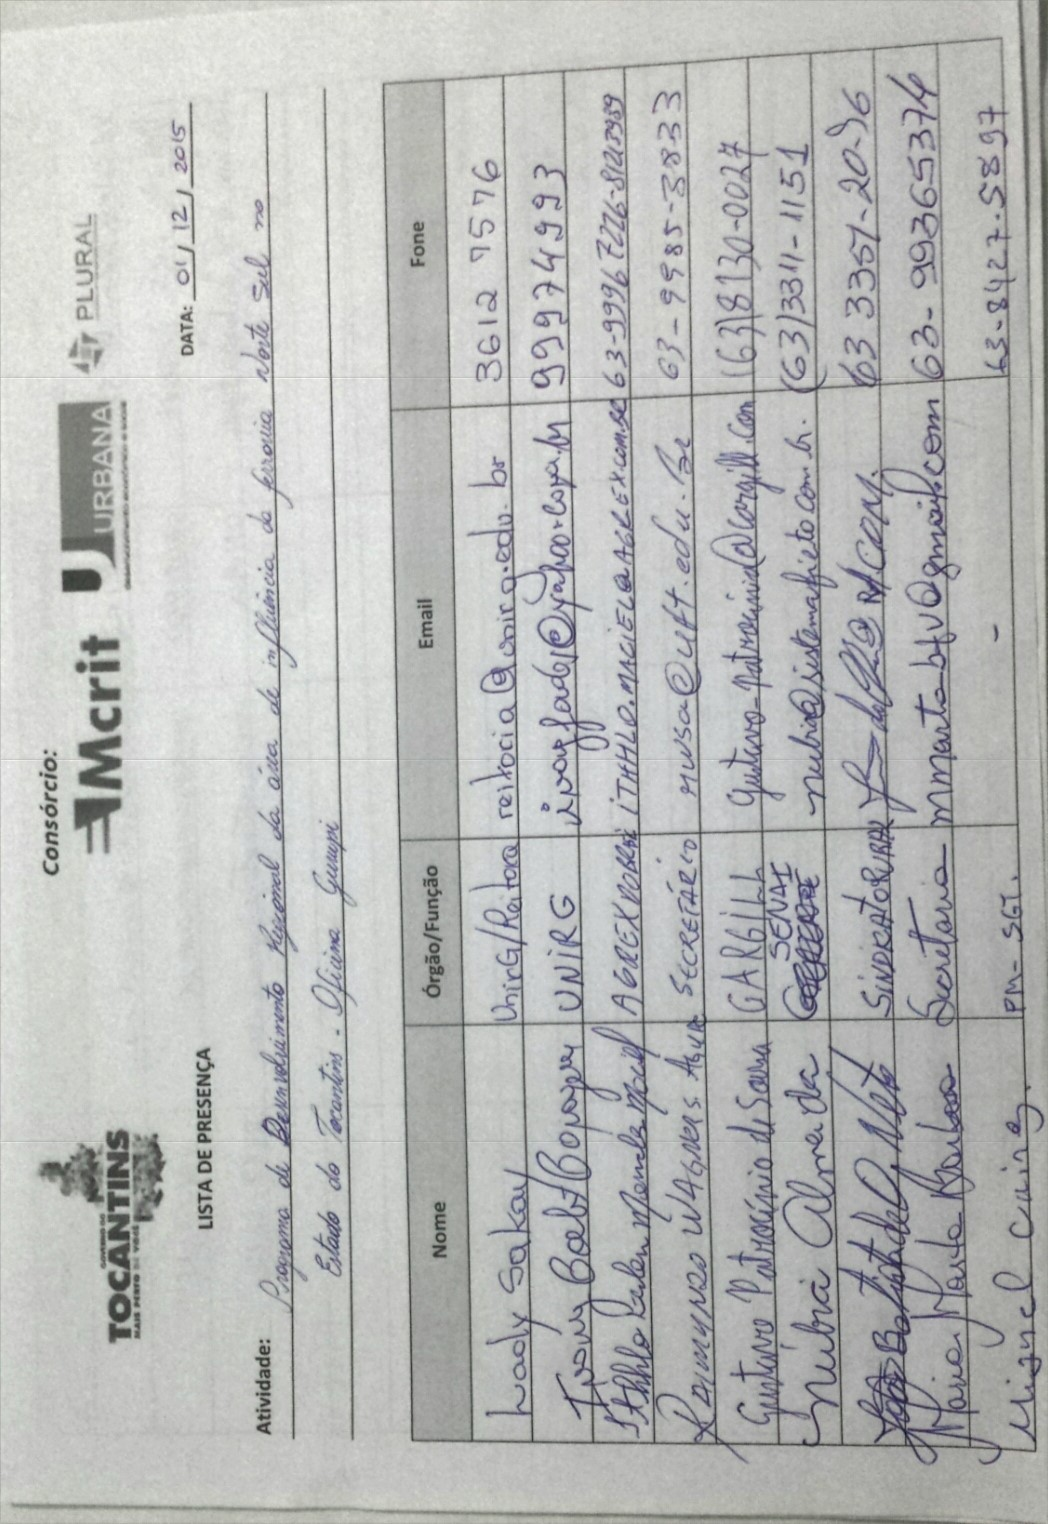 Consórcio:
GOVERNO DO
TOCANTINS
MAIS PERTO DE VOCÊ
Mcrit
URBANA
PLURAL
LISTA DE PRESENÇA
DATA: 01/12/2015
Atividade: Programa de Desenvolvimento Regional da área de influência da ferrovia Norte Sul no
Estado do Tocantins - Oficina Gurupi
Nome Órgão/Função Email Fone
Lady Sakay UnirG/Reitora reitoria@unirg.edu.br 3612 7576
UNIRG 999974993
Maciel AGREX DO BRASIL ITHHLO.MACIEL@AGREX.com.br
Raimundo WAGNER S. SECRETÁRIO @uft.edu.br 63-9985-3833
Gustavo Patrocínio de Sousa CARGILL Gustavo-Patrocinio@Cargill.com (63)8130-0027
Núbia Almeida SENAI nubia@sistemafieto.com.br. (63)3311-1151
João Batista Neto SINDICATO RURAL 63 3351-20-96
Maria Marta Barbosa Secretaria mmartabfv@gmail.com 63-993653374
Miguel PM-SGT. - 63-8427-5897